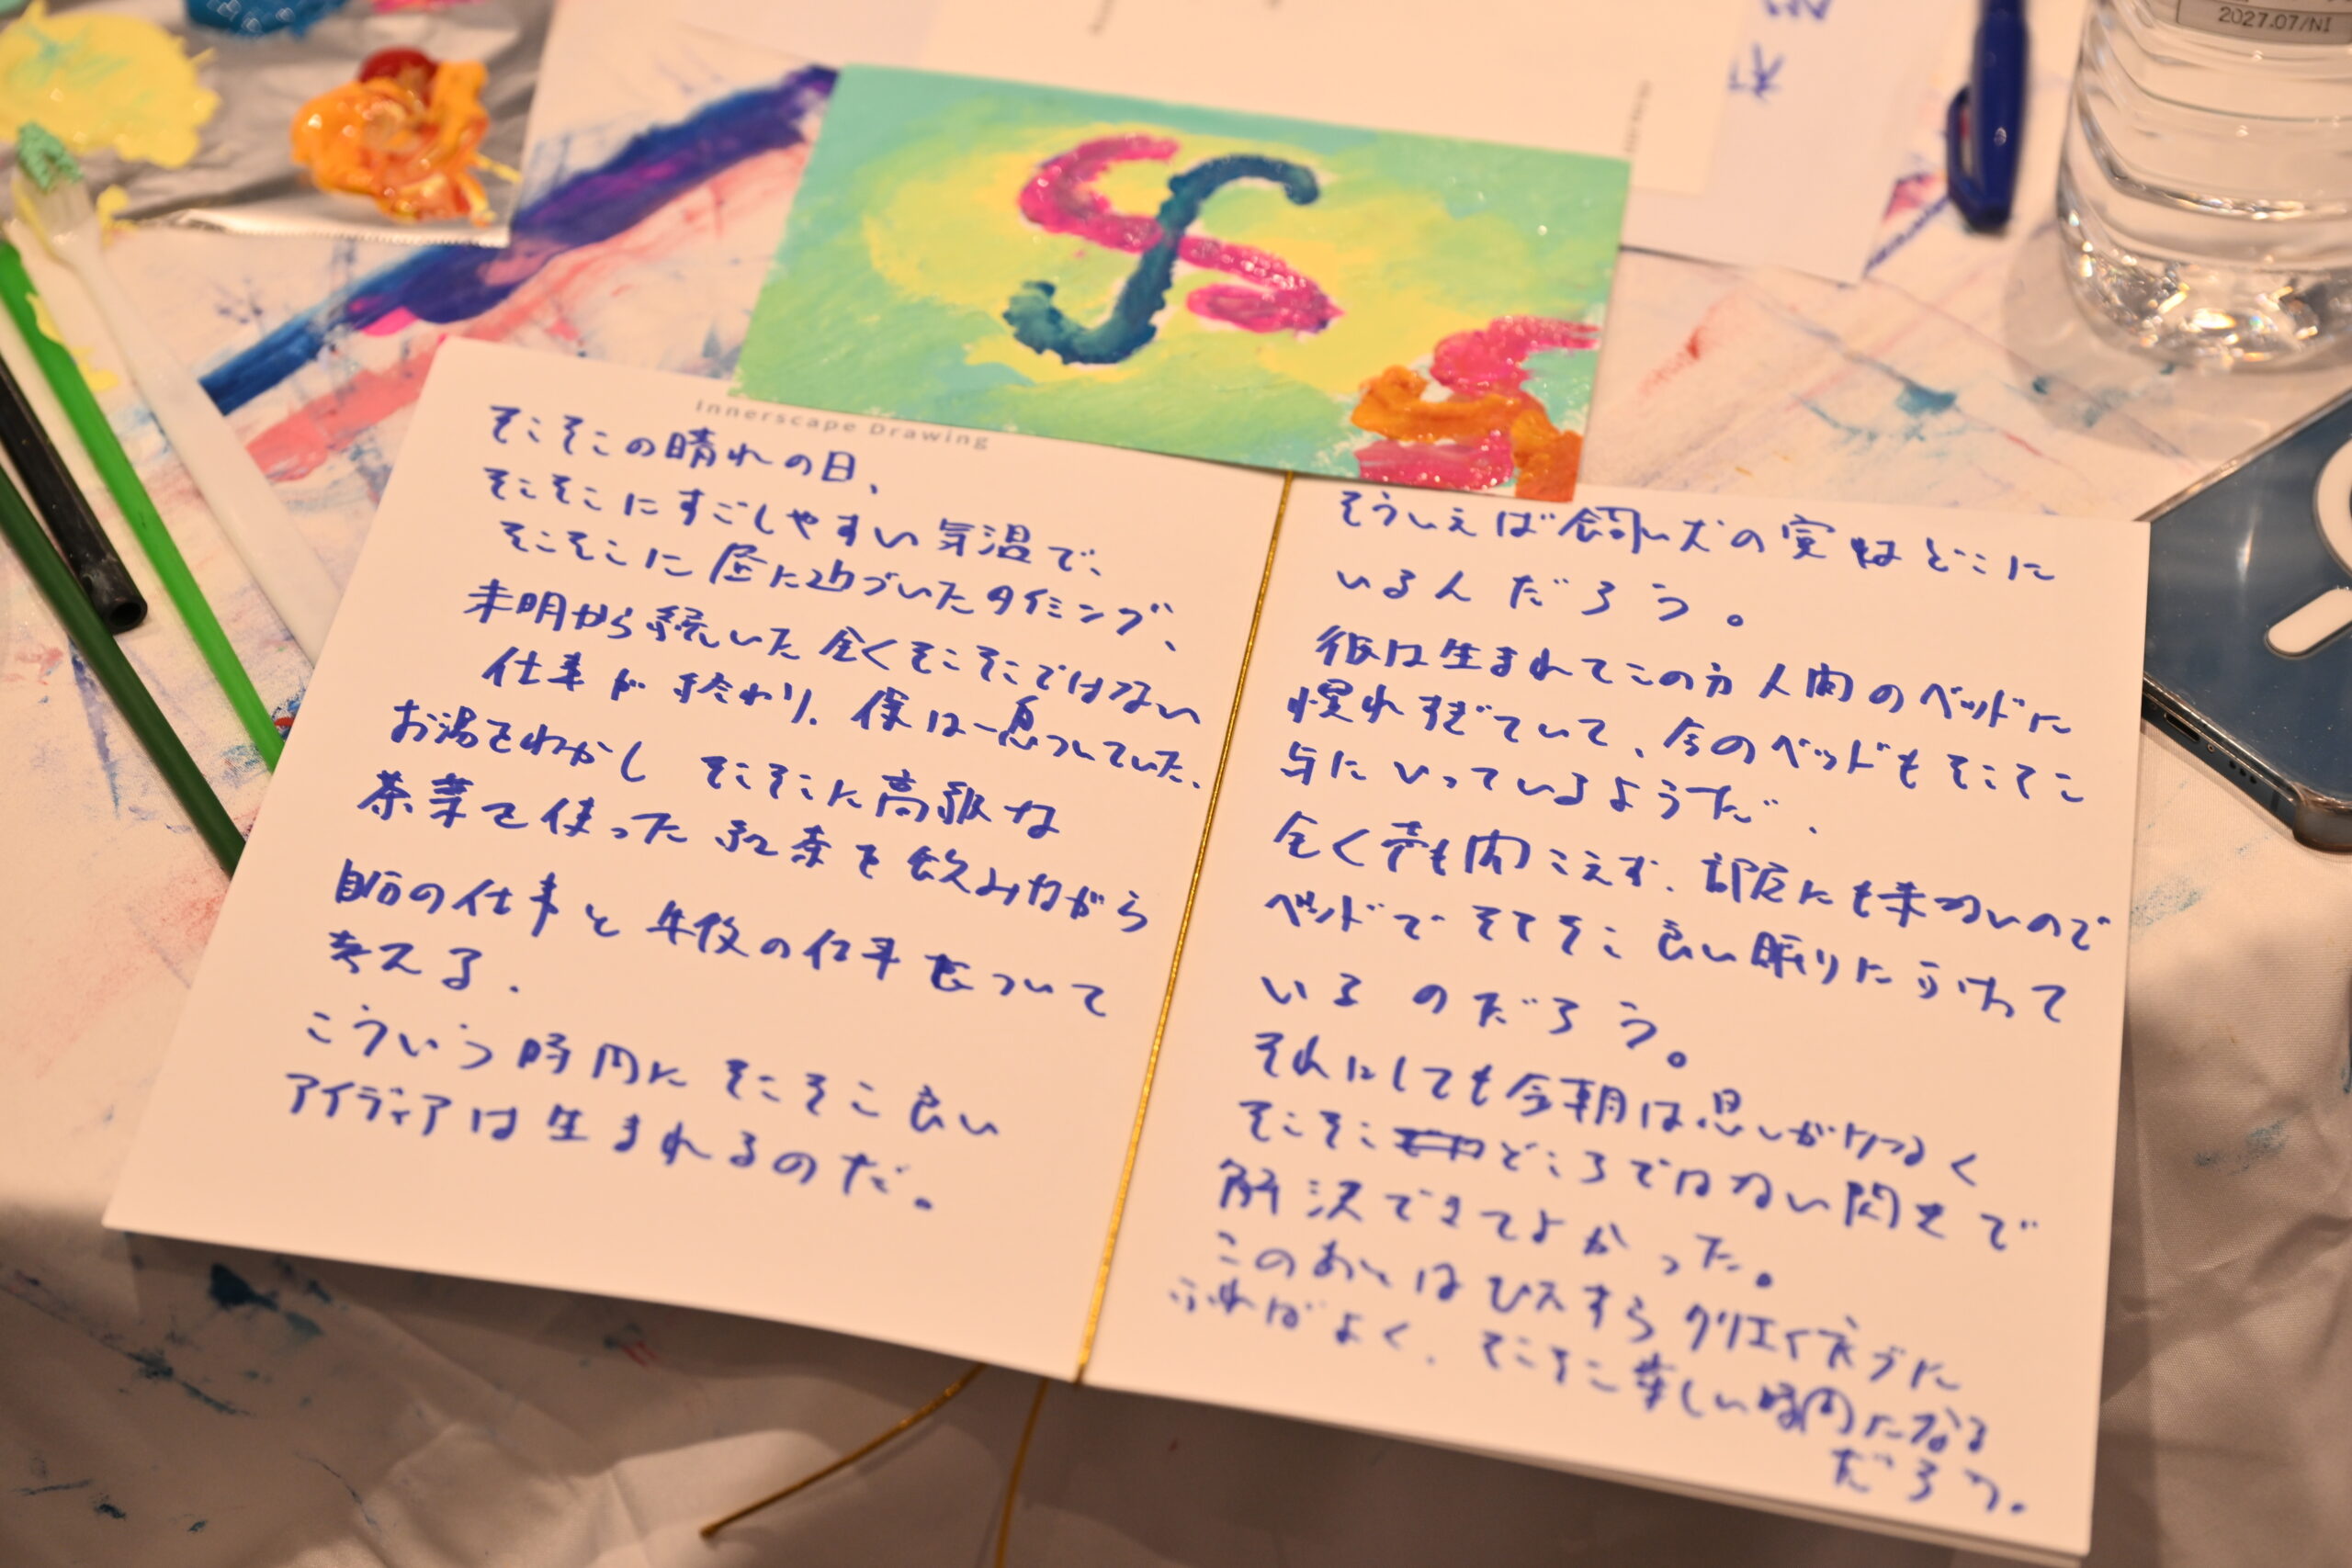 2027.07/NI
Innerscape Drawing
そこそこの晴れの日、
そこそこにすごしやすい気温で、
そこそこに昼に近づいたタイミング、
未明から続いた全くそこそこではない
仕事が終わり、僕は一息ついていた、
お湯をわかし そこそこに高級な
茶葉を使った紅茶を飲みながら
自信の仕事と午後の仕事をついて
考える.
こういう時間にそこそこ良い
アイディアは生まれるのだ。
そういえば飼い犬の実はどこに
いるんだろう。
彼は生まれてこの方人間のベッドに
慣れすぎていて、今のベッドもそこそこ
気にいっているようだ、
全く声も聞こえず、部屋にも来ないので
ベッドでそこそこ良い眠りにうかれて
いるのだろう。
それにしても今朝は思いがけなく
そこそこどころではない閃きで
解決できてよかった。
このあとはひたすらクリエイティブに
ふればよく、そこそこ楽しい時間になる
だろう。